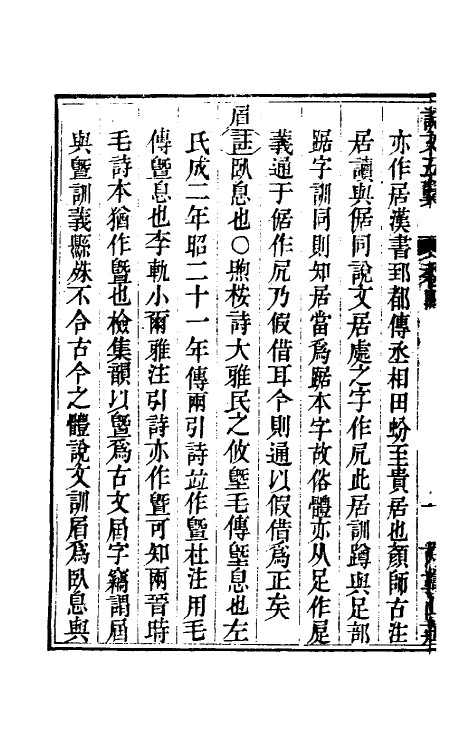 亦作居漢書郅都傳丞相田蚡至貴居也顏師古注
居讀與倨同說文居處之字作凥此居訓蹲與足部
踞字訓同則知居當爲踞本字故俗體亦从足作屟
義通于倨作凥乃假借耳今則通以假借爲正矣
眉註臥息也○煦桉詩大雅民之攸塈毛傳塈息也左
氏成二年昭二十一年傳兩引詩竝作曁杜注用毛
傳曁息也李軌小爾雅注引詩亦作曁可知兩晉時
毛詩本猶作曁也檢集韻以曁爲古文屆字竊謂屆
與曁訓義縣殊不合古今之體說文訓眉爲臥息與